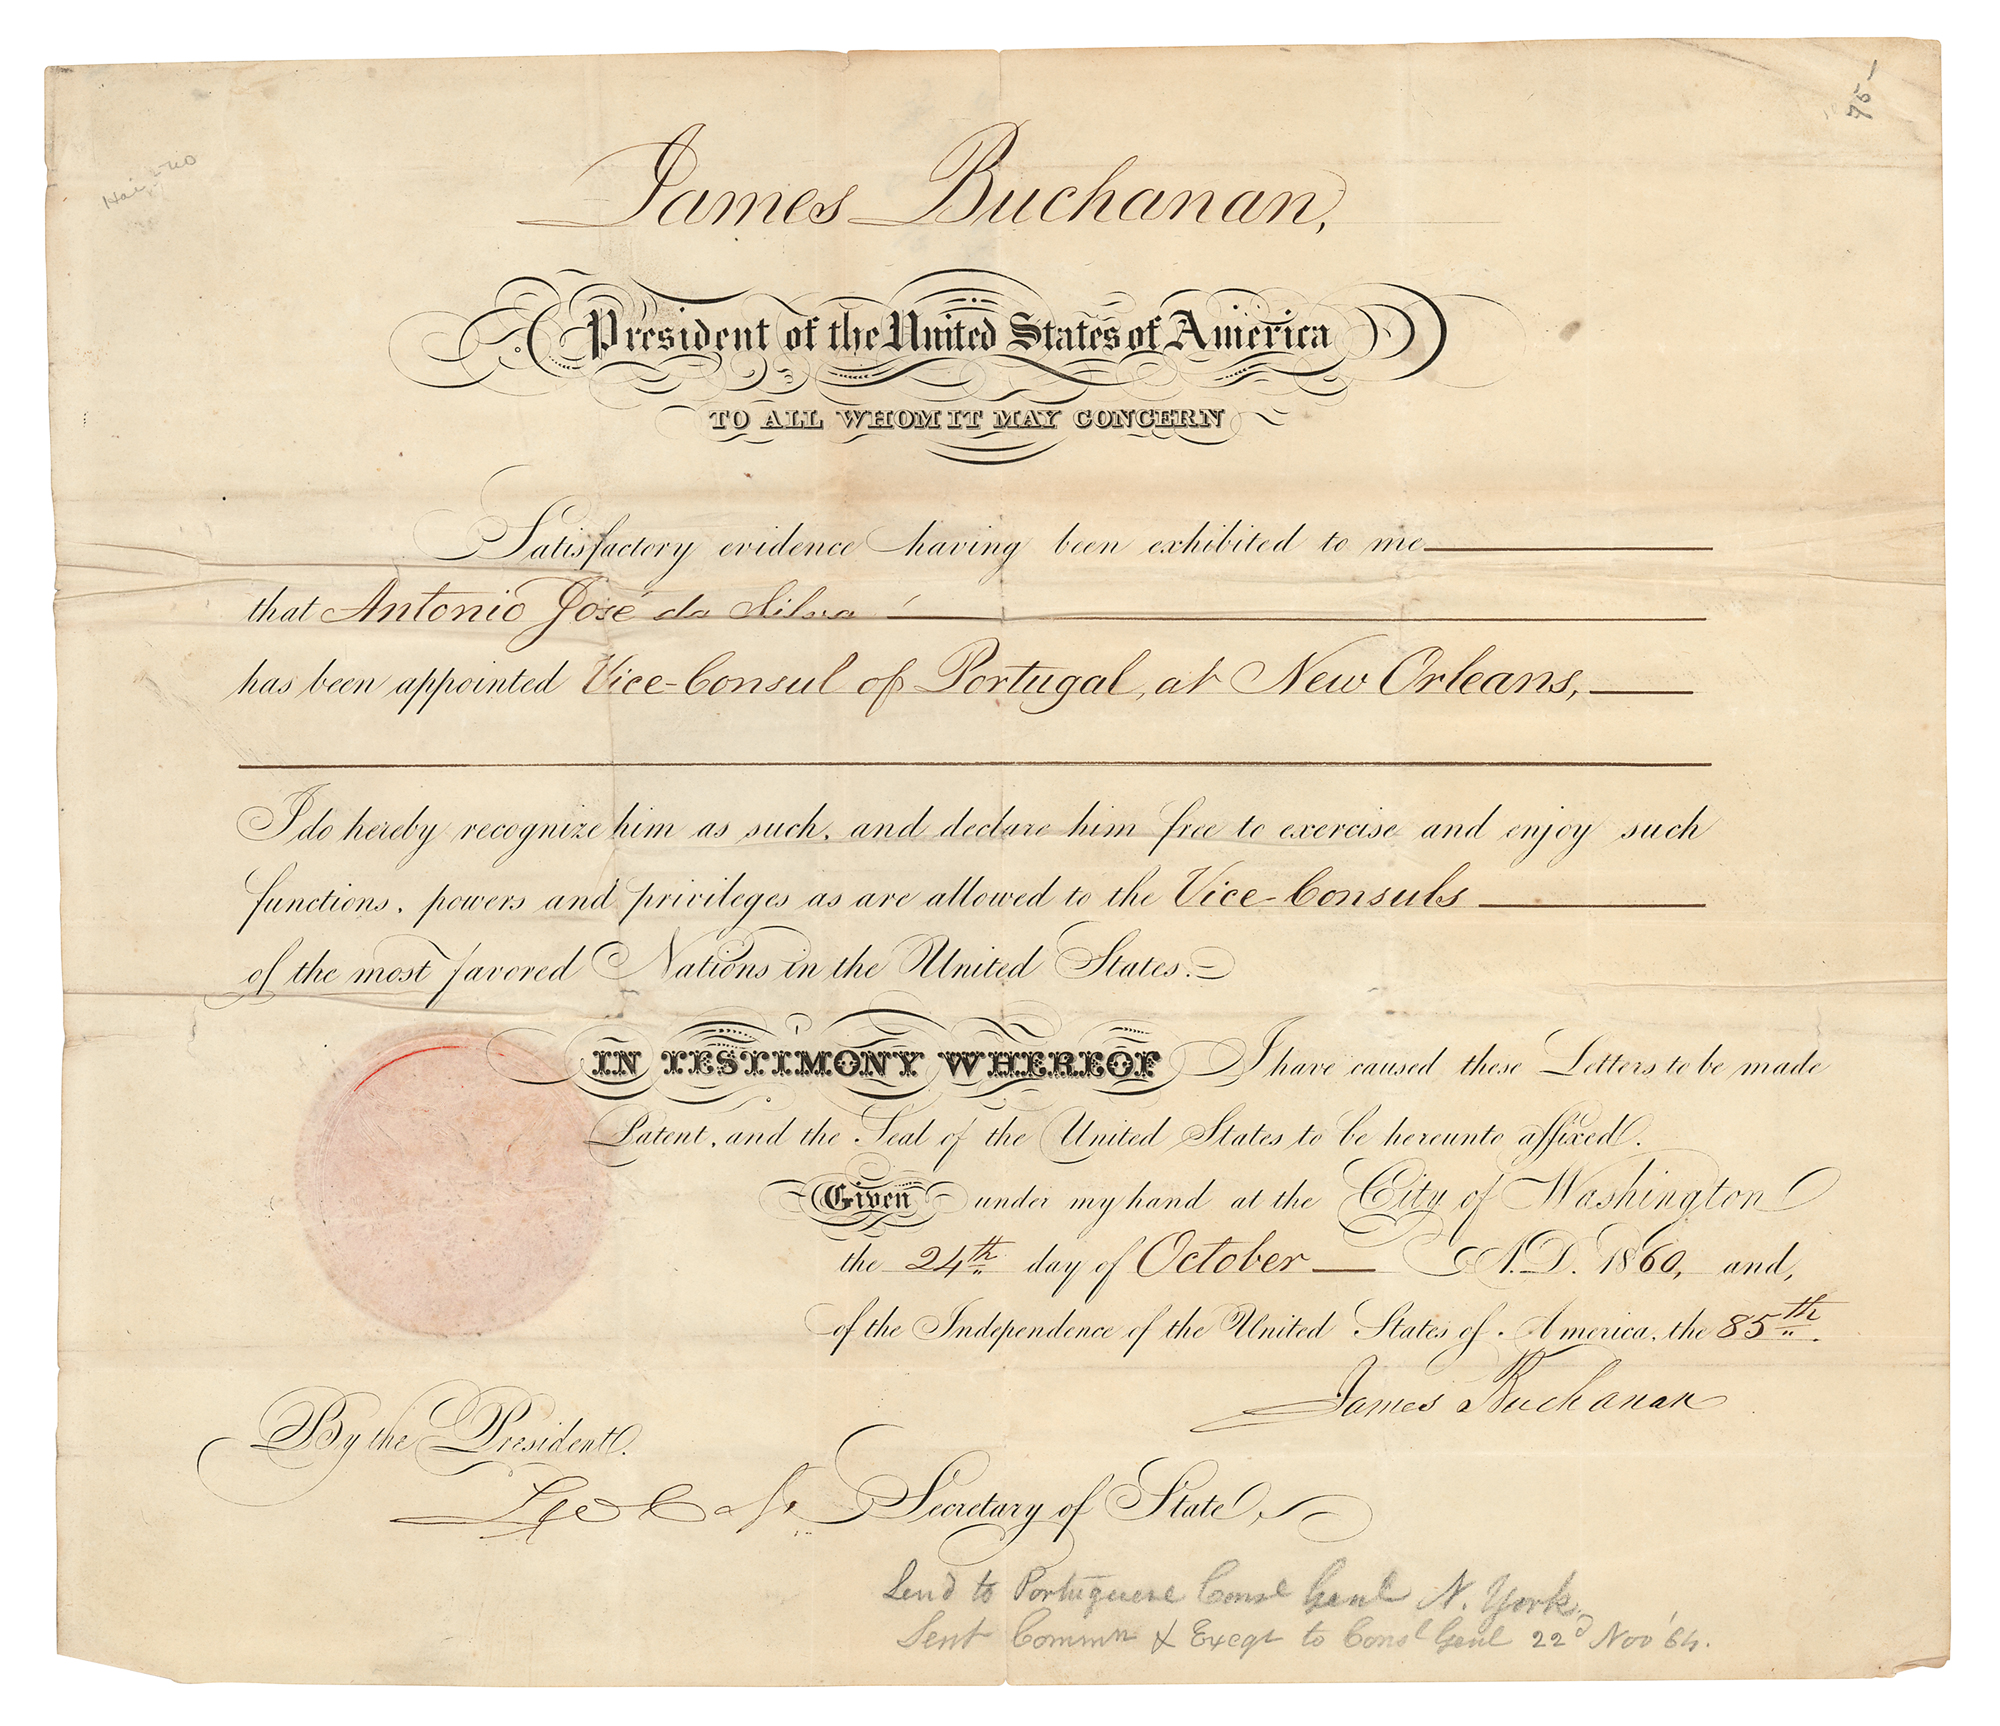 75-
James Buchanan,
President of the United States of America
TO ALL WHOM IT MAY CONCERN
Satisfactory evidence having been exhibited to me
that Antonio José da Silva
has been appointed Vice-Consul of Portugal, at New Orleans,
I do hereby recognize him as such, and declare him free to exercise and enjoy such
functions, powers and privileges as are allowed to the Vice-Consuls
of the most favored Nations in the United States.
IN TESTIMONY WHEREOF I have caused these Letters to be made
Patent, and the Seal of the United States to be hereunto affixed.
Given under my hand at the City of Washington
the 24th day of October A.D. 1860, and,
of the Independence of the United States of America, the 85th.
James Buchanan
By the President.
Lew Cass Secretary of State,
Send to Portuguese Consl Genl N. York.
Sent Commn & Exeqr to Consl Genl 22d Nov '64.